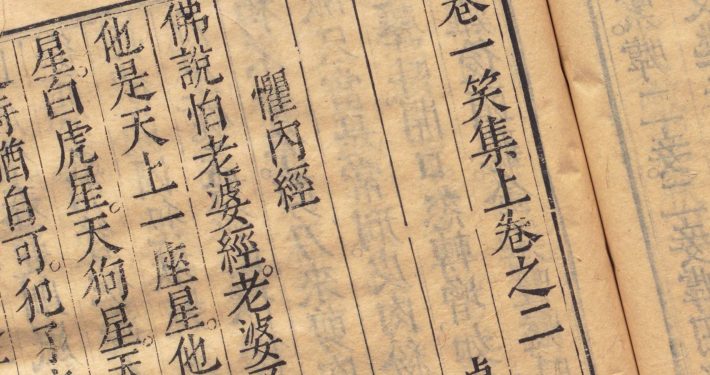 卷一笑集上卷之二
懼內經
佛說怕老婆經。老婆
他是天上一座星。他
星。白虎星。天狗星。天
猶自可。犯了